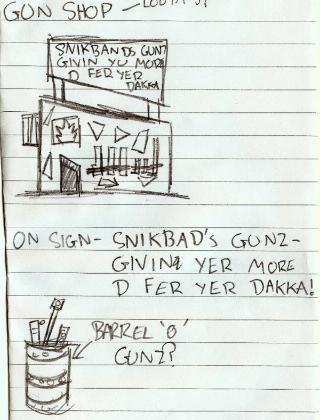 GUN SHOP –
SNIKBANDS GUNZ
GIVIN YU MORE
D FER YER
DAKKA
ON SIGN – SNIKBAD'S GUNZ –
GIVIN YER MORE
D FER YER DAKKA!
BARREL 'O'
GUNZ?